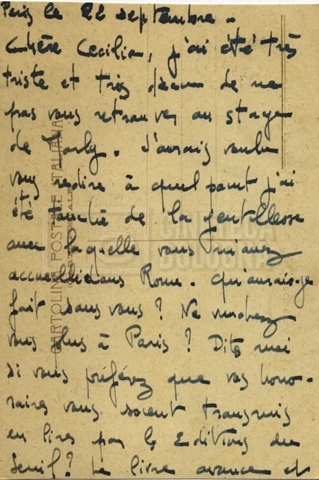 Paris le 22 septembre.
Chère Cecilia, j'ai été très
triste et très déçu de ne
pas vous retrouver au stage
de Marly. J'aurais voulu
vous redire à quel point j'ai
été touché de la gentillesse
avec laquelle vous m'avez
accueilli dans Rome. Qu'aurais-je
fait sans vous ? Ne viendrez
vous plus à Paris ? Dites moi
si vous préférez que vos hono-
raires vous soient transmis
en lires par les Editions du
Seuil ? Le livre avance et
CARTOLINA POSTALE ITALIANA